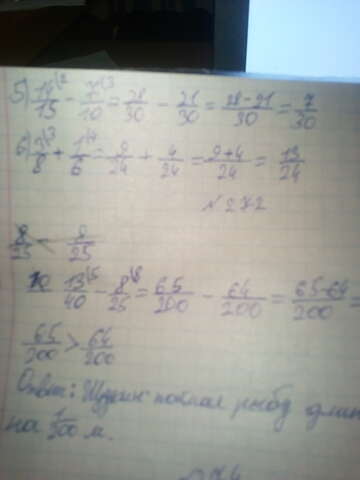 5) 14/15 \2 - 7/10 \3 = 28/30 - 21/30 = 28-21/30 = 7/30
6) 3/8 \3 + 1/6 \4 = 9/24 + 4/24 = 9+4/24 = 13/24
№ 272
8/25 < 8/25
13/40 \5 - 8/25 \8 = 65/200 - 64/200 = 65-64/200 =
65/200 > 64/200
Ответ: поймал рыбу длин
на 1/200 м.